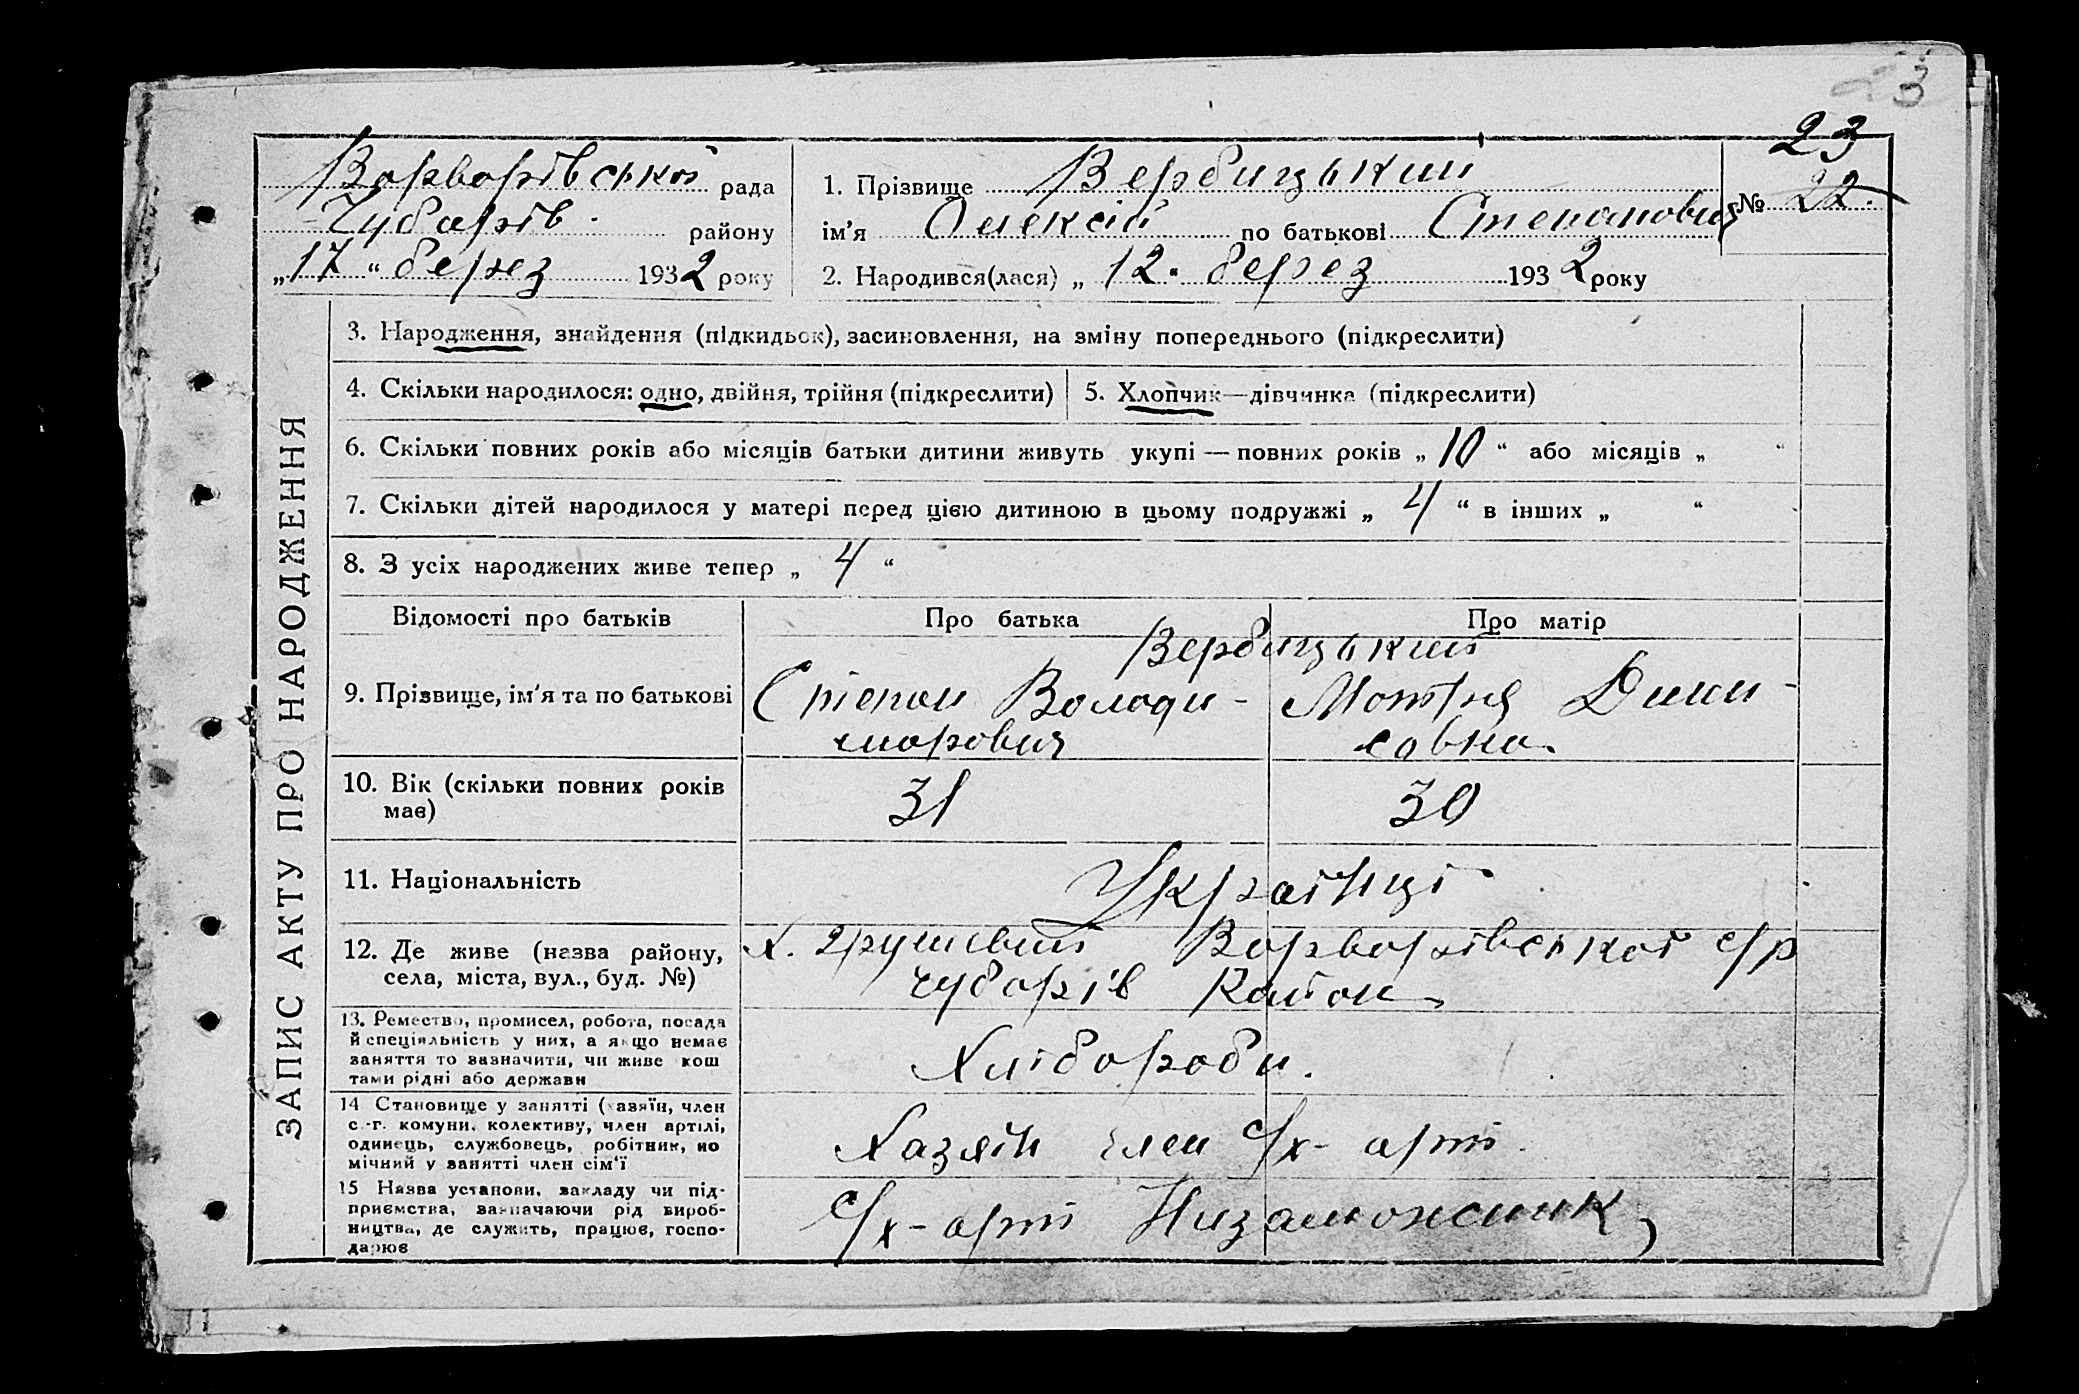 23
23
Варварівської рада
Чубарів. району
„17“ берез 1932 року
1. Прізвище Вербицький
ім’я Олексій по батькові Степанович
№ 22.
2. Народився(лася) „12“ берез 1932 року
ЗАПИС АКТУ ПРО НАРОДЖЕННЯ
3. Народження, знайдення (підкидьок), засиновлення, на зміну попереднього (підкреслити)
4. Скільки народилося: одно, двійня, трійня (підкреслити)
5. Хлопчик—дівчинка (підкреслити)
6. Скільки повних років або місяців батьки дитини живуть укупі — повних років „10“ або місяців „ “
7. Скільки дітей народилося у матері перед цією дитиною в цьому подружжі „4“ в інших „ “
8. З усіх народжених живе тепер „4“
Відомості про батьків
Про батька
Про матір
9. Прізвище, ім’я та по батькові
Вербицький
Степан Володи-
мирович
Мотря Дини-
совна
10. Вік (скільки повних років
має)
31
30
11. Національність
Українці
12. Де живе (назва району,
села, міста, вул., буд. №)
х. Грушевий Варварівської с/р
Чубарів Район
13. Ремество, промисел, робота, посада
й спеціяльність у них, а якщо немає
заняття то зазначити, чи живе кош
тами рідні або держави
Хлібороби.
14 Становище у занятті (хазяїн, член
с.-г. комуни, колективу, член артілі,
одинець, службовець, робітник, по
мічний у занятті член сім’ї
Хазяїн член с/х-арт.
15 Назва установи, закладу чи під-
приємства, зазначаючи рід вироб-
ництва, де служить, працює, госпо-
дарює
с/х-арт Низаможник